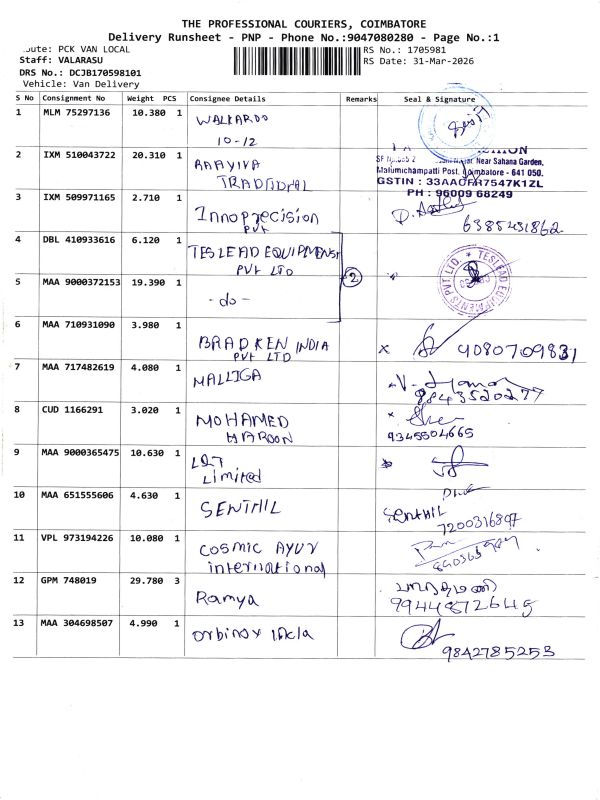 THE PROFESSIONAL COURIERS, COIMBATORE
Delivery Runsheet - PNP - Phone No.:9047080280 - Page No.:1
oute: PCK VAN LOCAL
RS No.: 1705981
Staff: VALARASU
RS Date: 31-Mar-2026
DRS No.: DCJB170598101
Vehicle: Van Delivery
S No Consignment No Weight PCS Consignee Details Remarks Seal & Signature
1 MLM 75297136 10.380 1 WALKAROO
10-12
2 IXM 510043722 20.310 1
Near Sahana Garden,
Malumichampatti Post, Coimbatore - 641 050.
GSTIN : 33AAOFR7547K1ZL
PH : 96009 68249
3 IXM 509971165 2.710 1 Innoprecision
PVT
6385431862
4 DBL 410933616 6.120 1 TESLEAD EQUIPMENST
PVT LTD
2
TESLEAD EQUIPMENTS PVT. LTD. *
5 MAA 9000372153 19.390 1 - do -
6 MAA 710931090 3.980 1 BRADKEN INDIA
PVT LTD
x 9080709831
7 MAA 717482619 4.080 1 MALLIGA
9843520277
8 CUD 1166291 3.020 1 MOHAMED
HAROON
9345504665
9 MAA 9000365475 10.630 1 LGT
Limited
10 MAA 651555606 4.630 1 SENTHIL
SENTHIL
7200316897
11 VPL 973194226 10.080 1 COSMIC AYUV
international
12 GPM 748019 29.780 3 Ramya
9944872645
13 MAA 304698507 4.990 1 Orbinox
9842785253